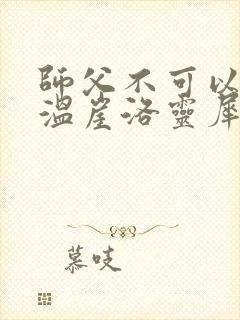 師父不可以
溫崖洛靈犀
慕吱